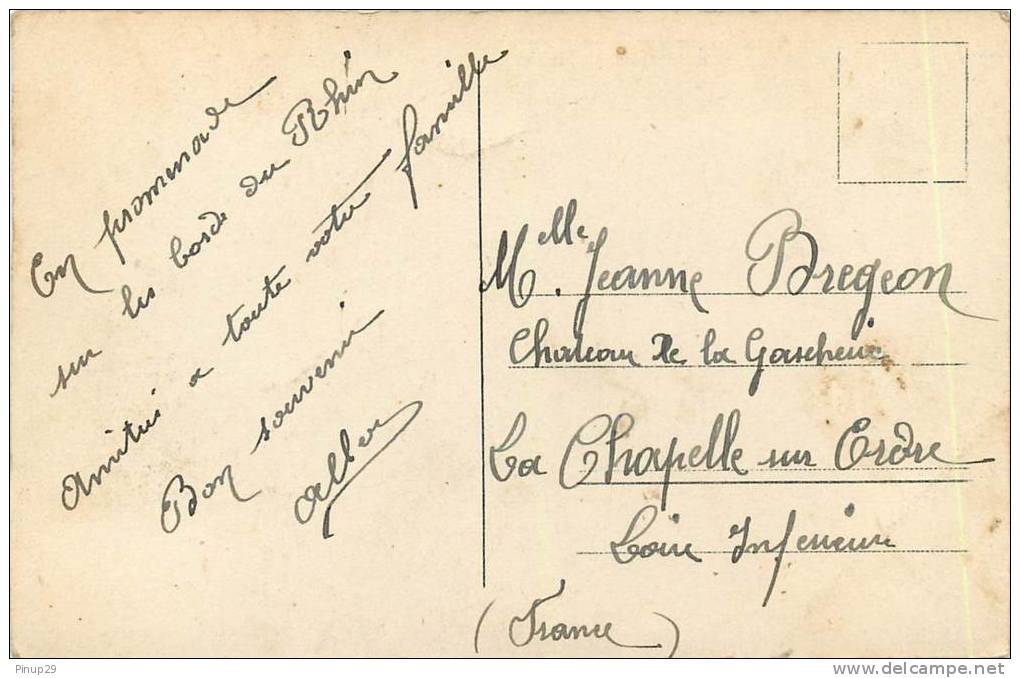 En promenade
sur les bords du Rhin
Amitié a toute votre famille
Bon souvenir
M.elle Jeanne Bregeon
Chateau De la Gascherie
La Chapelle sur Erdre
Loire Inferieure
(France)
Pinup29
www.delcampe.net